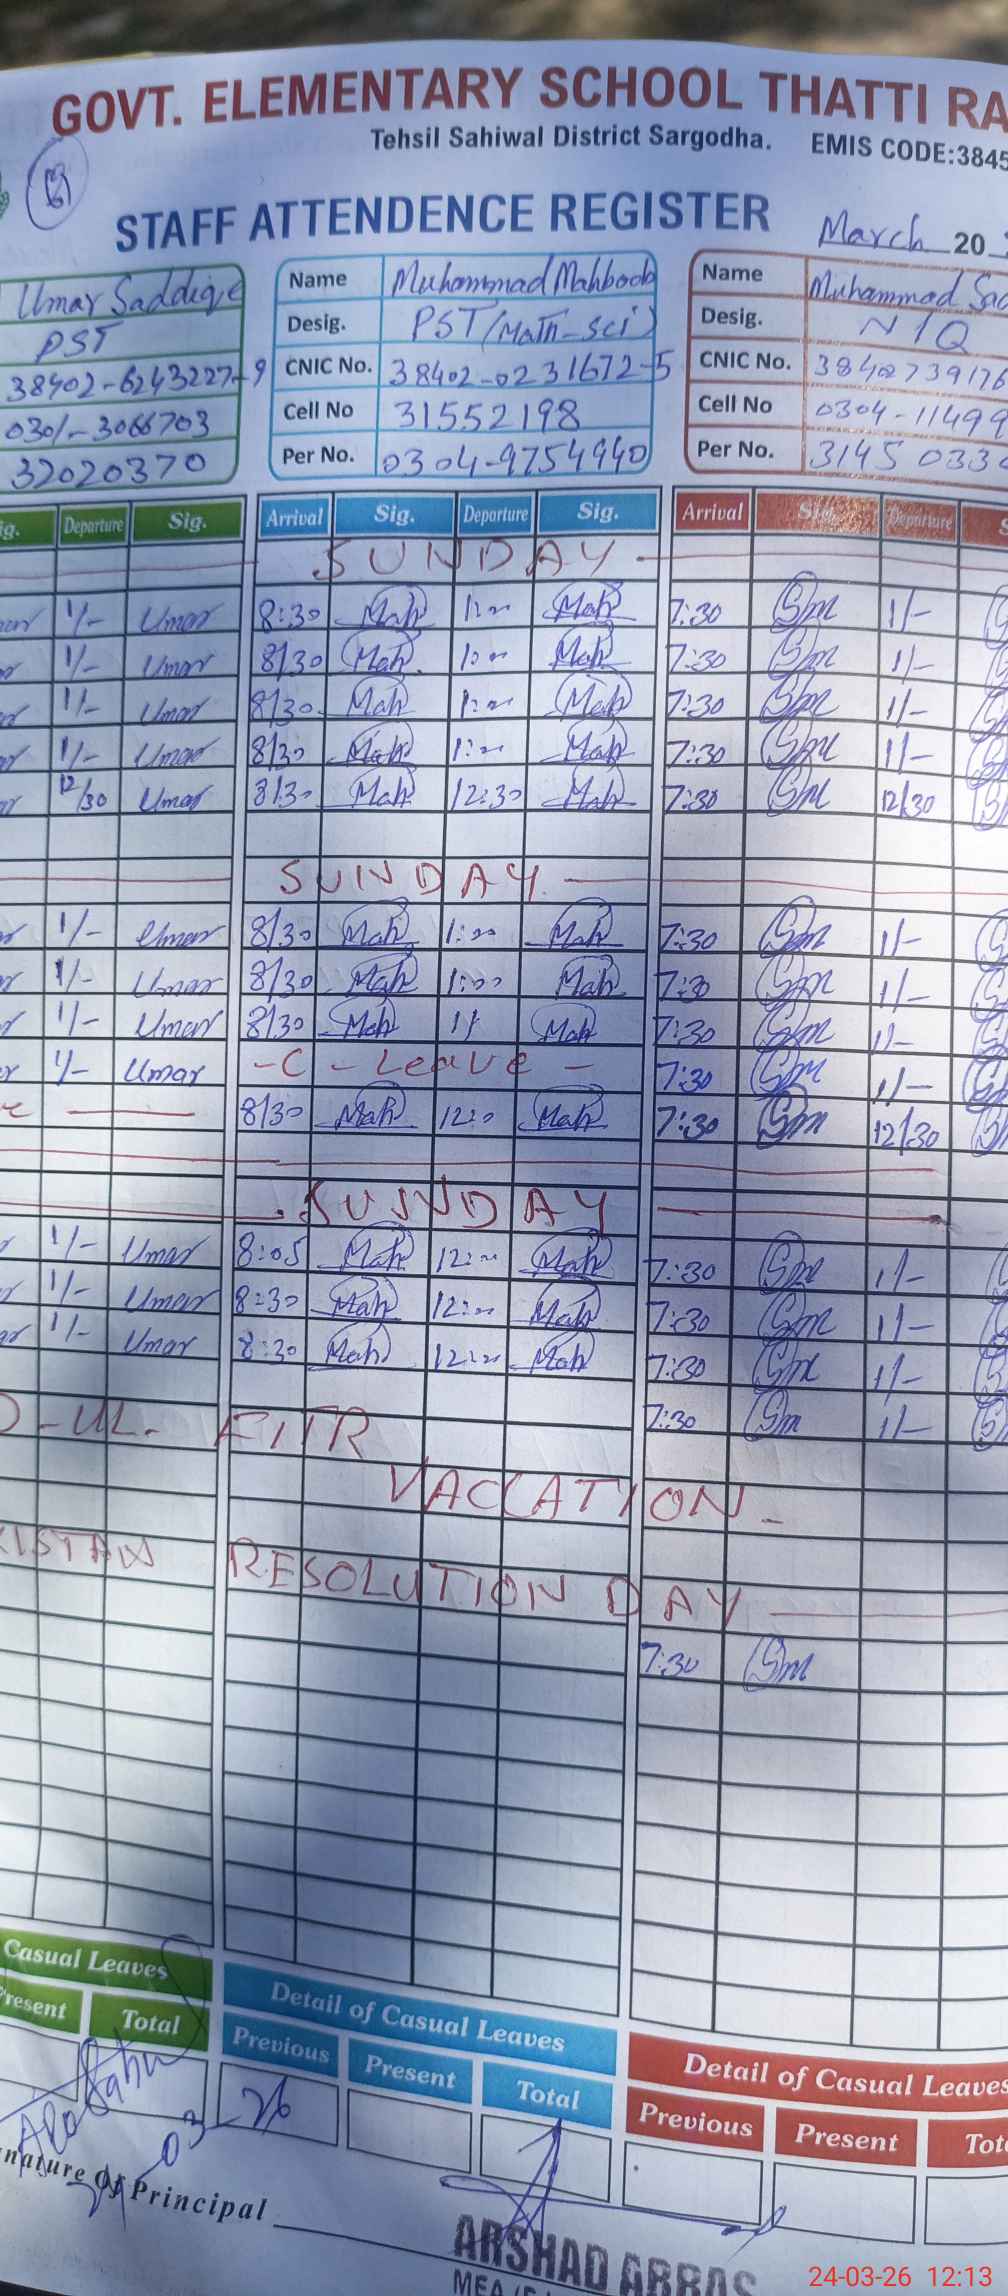 GOVT. ELEMENTARY SCHOOL THATTI RA
Tehsil Sahiwal District Sargodha. EMIS CODE:3845
STAFF ATTENDENCE REGISTER March 20
Umar Saddiqe Name Muhammad Mahboob Name Muhammad Sa
PST Desig. PST (Math-Sci) Desig. N/Q
38402-6243227-9 CNIC No. 38402-0231672-5 CNIC No. 3840273917
0301-3066703 Cell No 31552198 Cell No 0304-11499
32020370 Per No. 0304-9754940 Per No. 3145 033
ig. Departure Sig. Arrival Sig. Departure Sig. Arrival Sig. Departure S
SUNDAY
1/- Umar 8:30 Mah 1:00 Mah 7:30 Sm 1/-
1/- Umar 8/30 Mah 1:00 Mah 7:30 Sm 1/-
1/- Umar 8/30 Mah 1:00 Mah 7:30 Sm 1/-
1/- Umar 8/30 Mah 1:00 Mah 7:30 Sm 1/-
12/30 Umar 8/30 Mah 12:30 Mah 7:30 Sm 12/30
SUNDAY
1/- Umar 8/30 Mah 1:00 Mah 7:30 Sm 1/-
1/- Umar 8/30 Mah 1:00 Mah 7:30 Sm 1/-
1/- Umar 8/30 Mah 1/ Mah 7:30 Sm 1/-
1/- Umar -C-Leave- 7:30 Sm 1/-
8/30 Mah Mah 7:30 Sm 12/30
SUNDAY
1/- Umar 8:05 Mah 12:00 Mah 7:30 Sm 1/-
1/- Umar 8:30 Mah 12:00 Mah 7:30 Sm 1/-
1/- Umar 8:30 Mah 12:00 Mah 7:30 Sm 1/-
7:30 Sm 1/-
D-UL-FITR
VACCATION-
KISTAN RESOLUTION DAY
7:30 Sm
Casual Leaves Detail of Casual Leaves Detail of Casual Leaves
Present Total Previous Present Total Previous Present Tot
03-26
nature of Principal
ARSHAD ABBAS
MEA
24-03-26 12:13